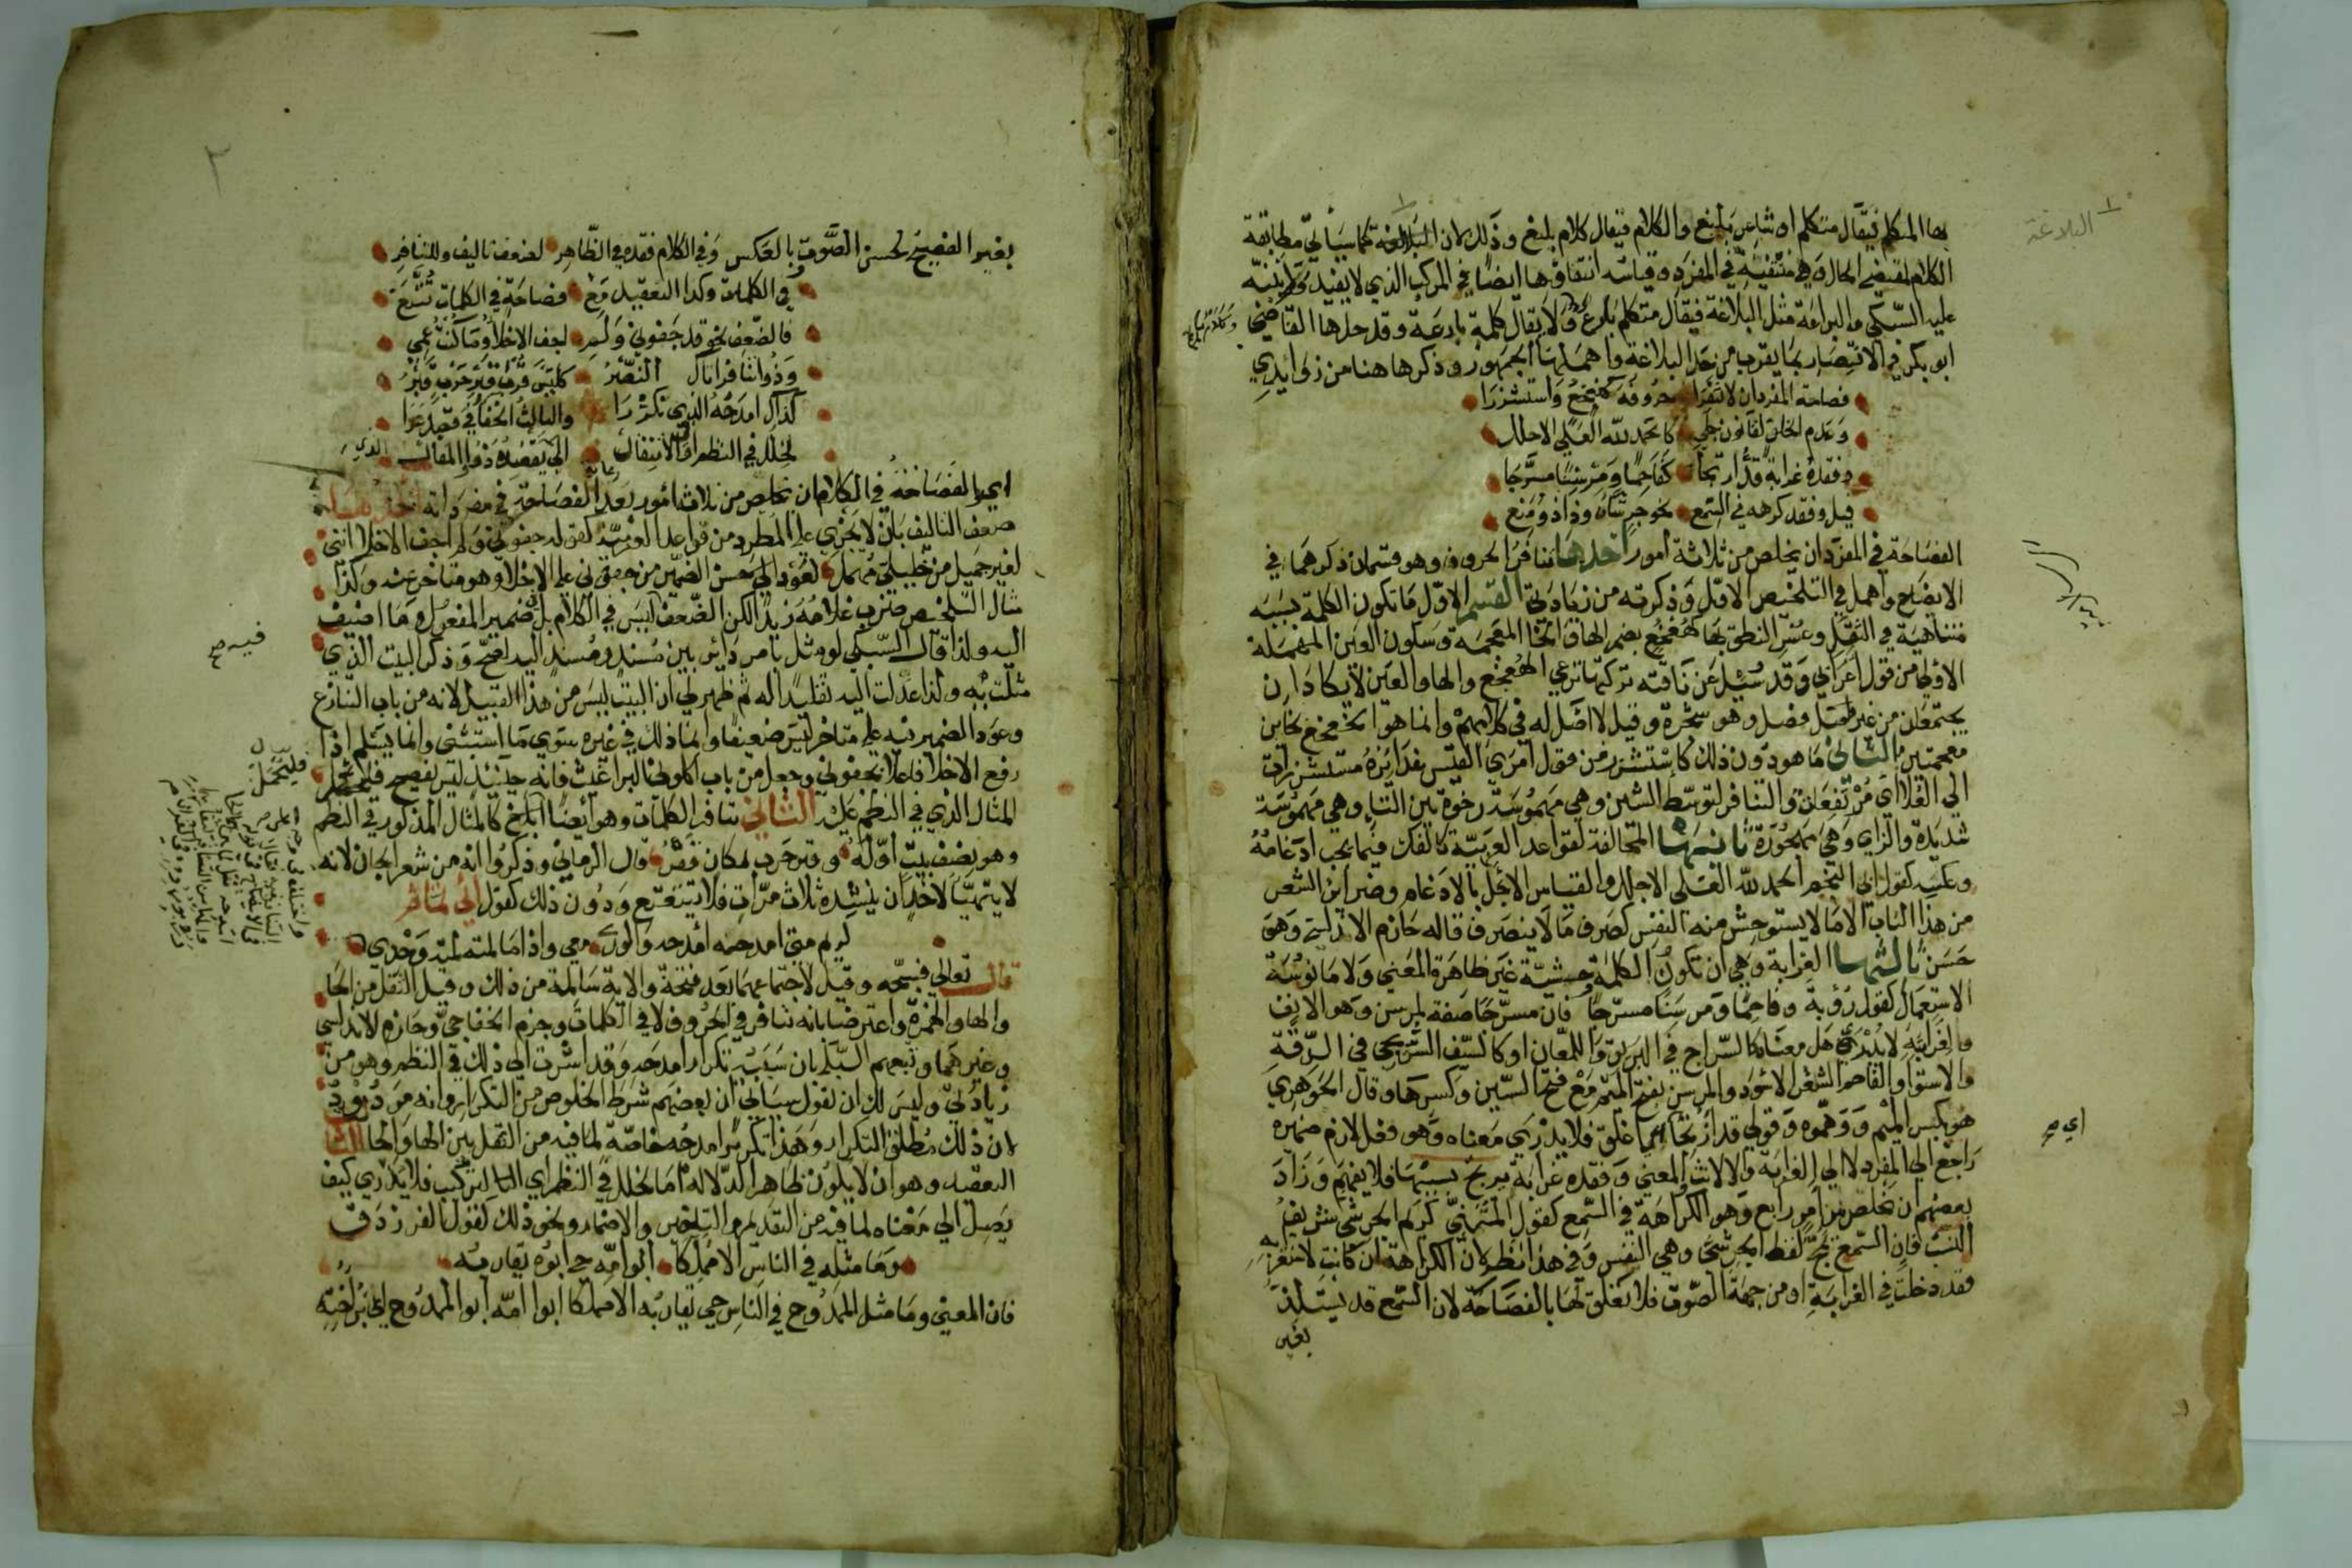 البلاغة
بها المتكلم فيقال متكلم او شاعر بليغ والكلام فيقال كلام بليغ وذلك لان البلاغة كما سياتي مطابقة
الكلام لمقتضى الحال وهي منتفية في المفرد وقياسه انتفاوها ايضا في المركب الذي لا يفيد ولم ينبه
عليه السبكي والبراعة مثل البلاغة فيقال متكلم بارع ولا يقال كلمة بارعة وقد حدها القاضي
ابو بكر في الانتصار بما يقرب من حد البلاغة واهملها الجمهور وذكرها هنا من زوايدي
فصاحة المفرد ان لا تنفرا حروفه كهعخع واستشزرا
وعدم الخلف لقانون جلي كالحمد لله العلي الاجلل
وفقده غرابة قد ارتجا كفاحما ومرسنا مسرجا
قيل وفقد كرهه في السمع نحو جرشاه وذا ذو منع
الفصاحة في المفرد ان يخلص من ثلاثة امور احدها تنافر الحروف وهو قسمان ذكرهما في
الايضاح واهمل في التلخيص الاول وذكرته من زيادتي القسم الاول ما تكون الكلمة بسببه
متناهية في الثقل وعسر النطق بها كهعخع بضم الها والخا المعجمة وسكون العين المهملة
الاولى من قول اعرابي وقد سئل عن ناقته تركتها ترعي الهعخع والها والعين لا يكادان
يجتمعان من غير فصل وهو شجرة وقيل لا اصل له في كلامهم وانما هو الخعخع بخاين
معجمتين الثاني ما هو دون ذلك كاستشزر من قول امري القيس غدايره مستشزرات
الي العلا اي مرتفعات والتنافر لتوسط الشين وهي مهموسة رخوة بين التا وهي مهموسة
شديدة والزاي وهي مجهورة ثانيها المخالفة لقواعد العربية كالفك فيما يجب ادغامه
وعكسه كقول ابي النجم الحمد لله العلي الاجلل والقياس الاجل بالادغام وضراير الشعر
من هذا الباب الا ما لا يستوحش منه النفس كصرف ما لا ينصرف قاله حازم الاندلسي وهو
حسن ثالثها الغرابة وهي ان تكون الكلمة وحشية غير ظاهرة المعني ولا مانوسة
الاستعمال كقول رؤبة وفاحما ومرسنا مسرجا فان مسرجا صفة لمرسن وهو الانف
ولغرابته لا يدري هل معناه كالسراج في البريق واللمعان او كالسيف السريجي في الدقة
والاستوا والفاحم الشعر الاسود والمرسن بفتح الميم مع فتح السين وكسرها وقال الجوهري
هو بكسر الميم ووهموه وقولي قد ارتجا اي غلق فلا يدري معناه وهو فعل لازم ضميره
راجع الي المفرد لا الي الغرابة والا لانث والمعني وفقده غرابة يرتج بسببها فلا يفهم وزاد
بعضهم ان يخلص من امر رابع وهو الكراهة في السمع كقول المتنبي كريم الجرشي شريف
النسب فان السمع يمج لفظ الجرشي وهي النفس وفي هذا نظر لان الكراهة ان كانت لاستغرابه
فقد دخلت في الغرابة او من جهة الصوت فلا تعلق لها بالفصاحة لان السمع قد يستلذ
بغير
اي صح
٢
بغير الفصيح لحسن الصوت بالعكس وفي الكلام فقده في الظاهر لضعف تاليف وللتنافر
في الكلمات وكذا التعقيد مع فصاحة في الكلمات تتبع
فالضعف نحو قد جفوني ولم اجف الاخلا وما كنت عمي
وذو تنافر اتاك النصر كليس قرب قبر حرب قبر
كذاك امدحه الذي تكررا والثالث الخفا في قصد عرا
لخلل في النظم او في الانتقال الي يقصده ذوو المقال
اي والفصاحة في الكلام ان يخلص من ثلاث امور بعد رعاية الفصاحة في مفرداته احدها
ضعف التاليف بان لا يجري علي المطرد من قواعد العربية كقوله جفوني ولم اجف الاخلا انني
لغير جميل من خليلي مهمل لعود الي الضمير من جفوني علي الاخلا وهو متاخر عنه وكذا
مثال التلخيص ضرب غلامه زيدا لكن الضعف ليس في الكلام بل في ضمير المفعول وما اضيف
اليه ولذا قال السبكي لو مثل بامر داير بين مسند ومسند اليه لصح وذكر البيت الذي
مثلت به ولذا عدلت اليه تقليدا له ثم ظهر لي ان البيت ليس من هذا القبيل لانه من باب التنازع
وعود الضمير فيه علي متاخر ليس ضعيفا وانما ذلك في غيره سوي ما استثني وانما يسلم اذا
رفع الاخلا فاعلا بجفوني وجعل من باب اكلوني البراغيث فانه حينئذ ليس بفصيح فليحمل
المثال الذي في النظم عليه الثاني تنافر الكلمات وهو ايضا ابلغ كالمثال المذكور في النظم
وهو نصف بيت اوله وقبر حرب بمكان قفر قال الرماني وذكروا انه من شعر الجان لانه
لا يتهيا لاحد ان ينشده ثلاث مرات فلا يتتعتع ودون ذلك كقول ابي تمام
كريم متي امدحه امدحه والوري معي واذا ما لمته لمته وحدي
قال تعالي فسبحه وقيل لاجتماعهما بعد فتحة والاية سالمة من ذلك وقيل الثقل من الحا
والها والهمزة واعترضا بانه تنافر في الحروف لا في الكلمات وجزم الخفاجي وحازم الاندلسي
وغيرهما وتبعهم السبكي بان سببه تكرار امدحه وقد اشرت الي ذلك في النظم وهو من
زيادتي وليس لك ان تقول سياتي ان بعضهم شرط الخلوص من التكرار وانه مردود
لان ذلك مطلق التكرار وهذا تكرير امدحه خاصة لما فيه من الثقل بين الها والحا الثالث
التعقيد وهو ان لا يكون ظاهر الدلالة اما لخلل في النظم اي التركيب فلا يدري كيف
يصل الي معناه لما فيه من التقديم والتاخير والاضمار ونحو ذلك كقول الفرزدق
وما مثله في الناس الا مملكا ابو امه حي ابوه يقاربه
فان المعني وما مثل الممدوح في الناس حي يقاربه الا مملكا ابو امه ابو الممدوح اي ابن اخته
فيه صح
فليحمل